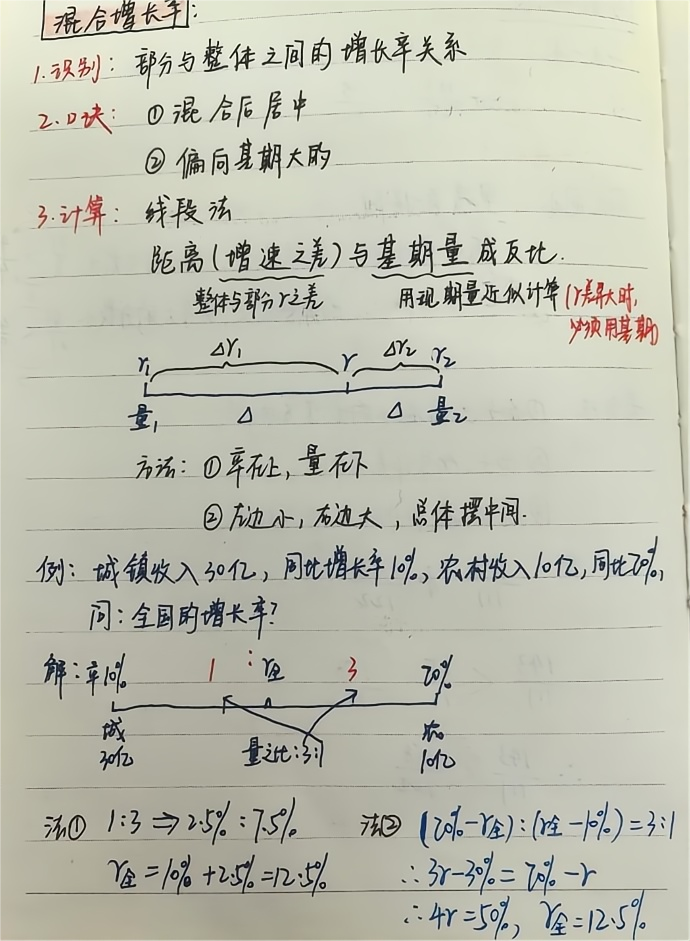 混合增长率:
1.识别: 部分与整体之间的增长率关系
2.口诀: ①混合后居中
②偏向基期大的
3.计算: 线段法
距离(增速之差)与基期量成反比.
整体与部分r之差 用现期量近似计算(r差异大时,
必须用基期)
r₁ Δr₁ r Δr₂ r₂
量₁ Δ Δ 量₂
方法: ①率在上,量在下
②左边小,右边大,总体摆中间.
例: 城镇收入30亿,同比增长率10%,农村收入10亿,同比20%,
问:全国的增长率?
解:率10% 1 : r全 3 20%
城 量之比:3:1 农
30亿 10亿
法① 1:3 ⇒ 2.5% : 7.5%
r全=10%+2.5%=12.5%
法② (20%-r全):(r全-10%)=3:1
∴3r-30%=20%-r
∴4r=50%, r全=12.5%